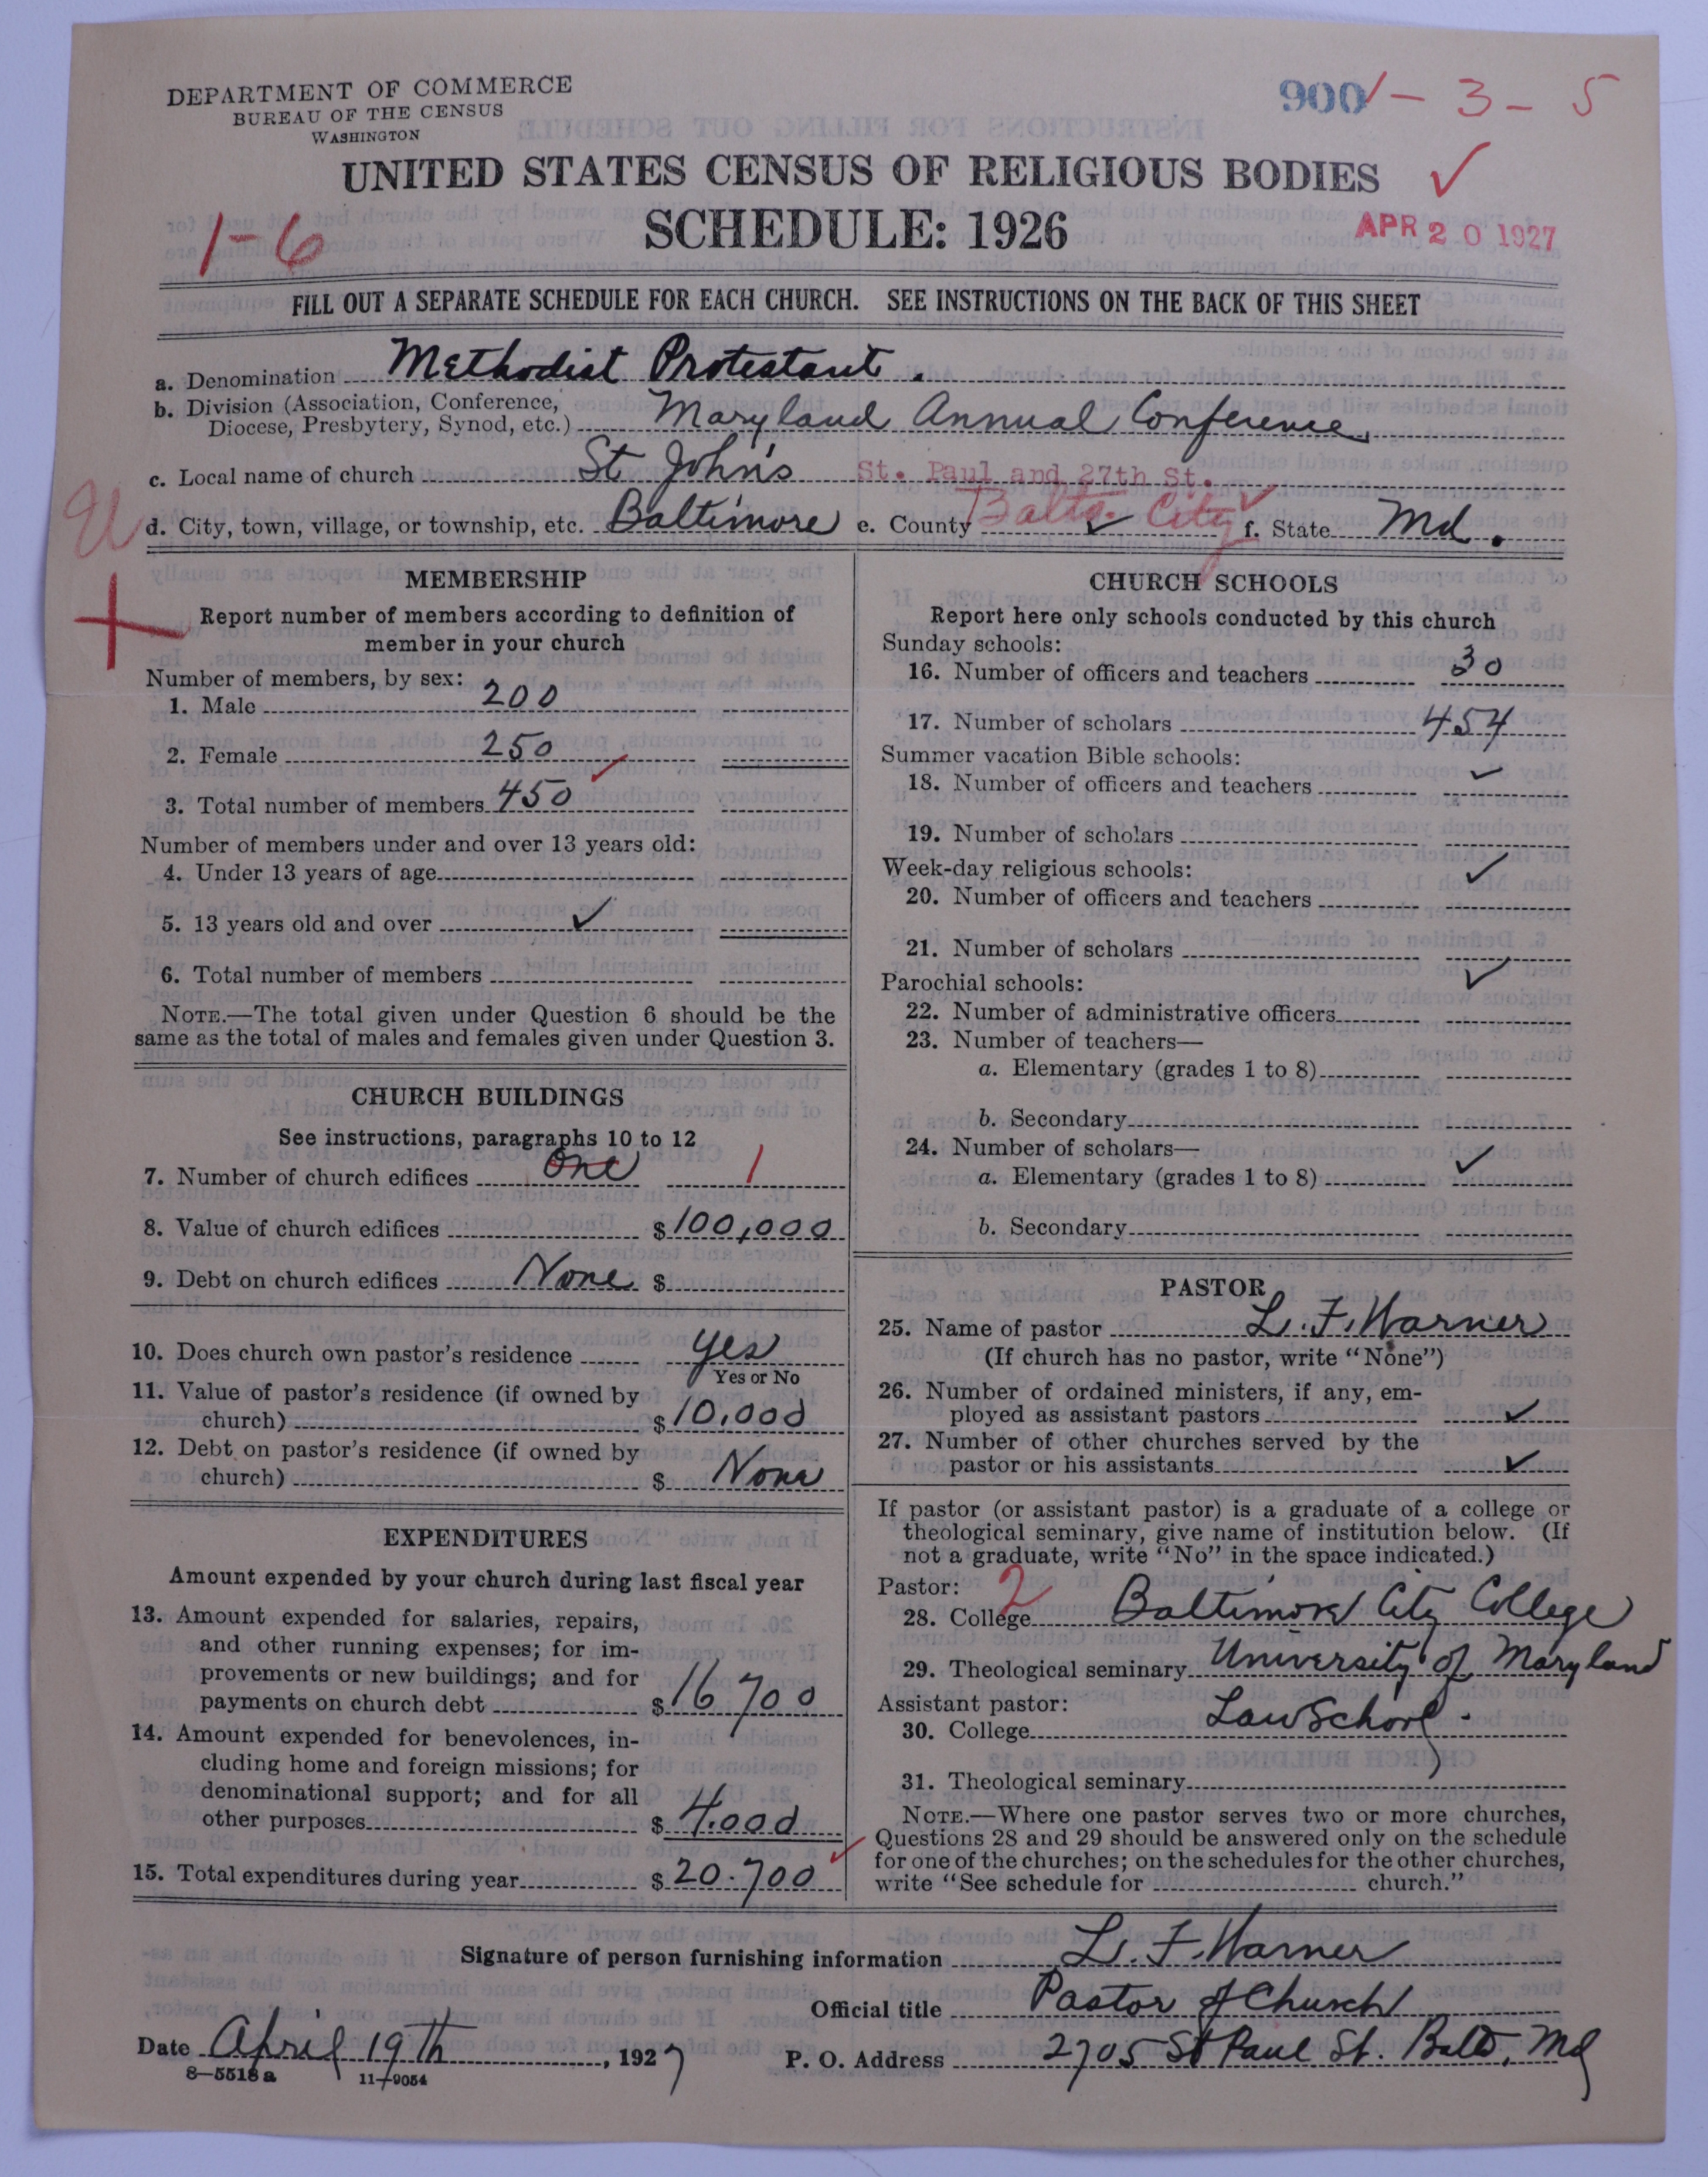 DEPARTMENT OF COMMERCE
BUREAU OF THE CENSUS
WASHINGTON
900 1 - 3 - 5
UNITED STATES CENSUS OF RELIGIOUS BODIES ✓
SCHEDULE: 1926
1-6
APR 20 1927
FILL OUT A SEPARATE SCHEDULE FOR EACH CHURCH. SEE INSTRUCTIONS ON THE BACK OF THIS SHEET
a. Denomination Methodist Protestant.
b. Division (Association, Conference,
Diocese, Presbytery, Synod, etc.) Maryland Annual Conference
c. Local name of church St John's St. Paul and 27th St.
d. City, town, village, or township, etc. Baltimore e. County Balto. City ✓ f. State Md.
MEMBERSHIP
Report number of members according to definition of
member in your church
Number of members, by sex:
1. Male 200
2. Female 250
3. Total number of members 450 ✓
Number of members under and over 13 years old:
4. Under 13 years of age
5. 13 years old and over ✓
6. Total number of members
NOTE.—The total given under Question 6 should be the
same as the total of males and females given under Question 3.
CHURCH BUILDINGS
See instructions, paragraphs 10 to 12
7. Number of church edifices One 1
8. Value of church edifices $ 100,000
9. Debt on church edifices None $
10. Does church own pastor's residence yes
Yes or No
11. Value of pastor's residence (if owned by
church) $ 10,000
12. Debt on pastor's residence (if owned by
church) $ None
EXPENDITURES
Amount expended by your church during last fiscal year
13. Amount expended for salaries, repairs,
and other running expenses; for im-
provements or new buildings; and for
payments on church debt $ 16700
14. Amount expended for benevolences, in-
cluding home and foreign missions; for
denominational support; and for all
other purposes $ 4.000
15. Total expenditures during year $ 20.700 ✓
CHURCH SCHOOLS
Report here only schools conducted by this church
Sunday schools:
16. Number of officers and teachers 30
17. Number of scholars 454
Summer vacation Bible schools:
18. Number of officers and teachers ✓
19. Number of scholars
Week-day religious schools: ✓
20. Number of officers and teachers
21. Number of scholars
Parochial schools: ✓
22. Number of administrative officers
23. Number of teachers—
a. Elementary (grades 1 to 8)
b. Secondary
24. Number of scholars—
a. Elementary (grades 1 to 8) ✓
b. Secondary
PASTOR
25. Name of pastor L. F. Warner
(If church has no pastor, write "None")
26. Number of ordained ministers, if any, em-
ployed as assistant pastors ✓
27. Number of other churches served by the
pastor or his assistants ✓
If pastor (or assistant pastor) is a graduate of a college or
theological seminary, give name of institution below. (If
not a graduate, write "No" in the space indicated.)
Pastor: 2
28. College Baltimore City College
29. Theological seminary University of Maryland
Assistant pastor: Law School.
30. College
31. Theological seminary
NOTE.—Where one pastor serves two or more churches,
Questions 28 and 29 should be answered only on the schedule
for one of the churches; on the schedules for the other churches,
write "See schedule for church."
Signature of person furnishing information L. F. Warner
Official title Pastor of Church
Date April 19th, 1927 P. O. Address 2705 St Paul St. Balto, Md
8—5518a 11—9054